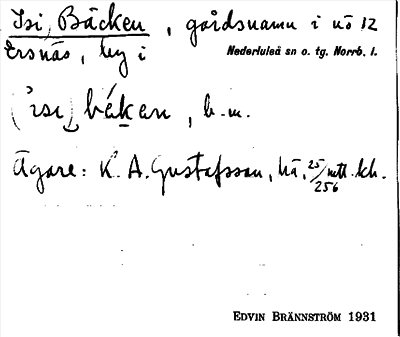 Isi Bäcken, gårdsnamn i nö 12
Ersnäs, by i Nederluleå sn o. tg. Norrb. l.
('isi) békan, b. m.
Ägare: K. A. Gustafsson, 25/256
EDVIN BRÄNNSTRÖM 1931